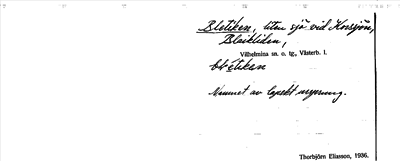 Bletiken, liten sjö vid Korsjön,
Blaikliden,
Vilhelmina sn. o. tg., Västerb. l.
blétikan
Namnet av lapskt ursprung.
Thorbjörn Eliasson, 1936.